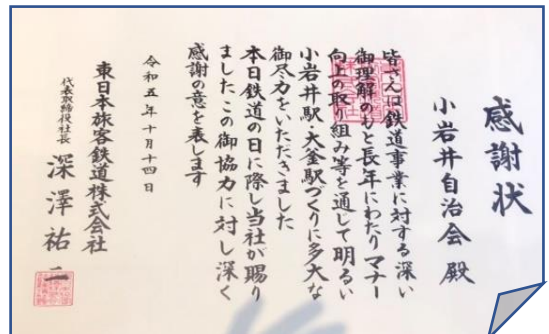 感謝状
小岩井自治会 殿
皆さんは鉄道事業に対する深い
御理解のもと長年にわたりマナー
向上の取り組み等を通じて明るい
小岩井駅・大釜駅づくりに多大な
御尽力をいただきました
本日鉄道の日に際し当社が賜り
ましたこの御協力に対し深く
感謝の意を表します
令和五年十月十四日
東日本旅客鉄道株式会社
代表取締役社長 深澤祐二